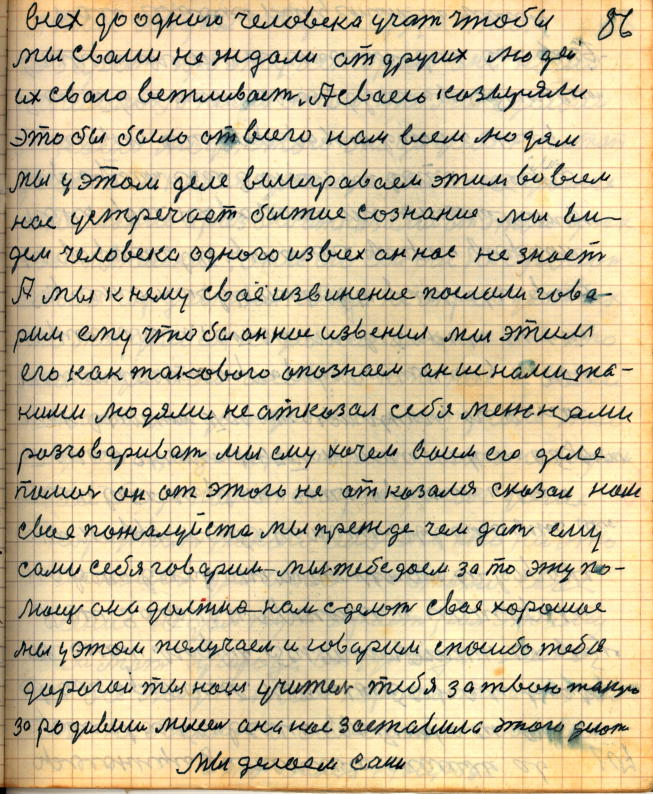 всех до одного человека учат чтобы 86
мы свами не ждали от других людей
их сваго ветливает. А сваею козыряли
это бы было от всего нам всем людям
мы у этом деле выиграваем этим во всем
нас устречает бытие сознание мы ви-
дем человека одного из всех он нас не знает
А мы к нему сваё извинение послали гова-
рим ему чтобы он нас извенил мы этим
его как такового опознаем он и с нами та-
кими людями не атказал себя межнами
розговариват мы ему хочем воим его деле
помоч он от этого не отказался сказал нам
свае пожалуйста мы прежде чем дат ему
сами себя говарим мы тебе даем за то эту по-
мощ она должна нам сделат свае хорошае
мы у этом получаем и говарим спасибо тебе
дорогой ты наш учител тебя за твою такую
зародивши мысел она нас заставила этого делат
Мы делаем сами